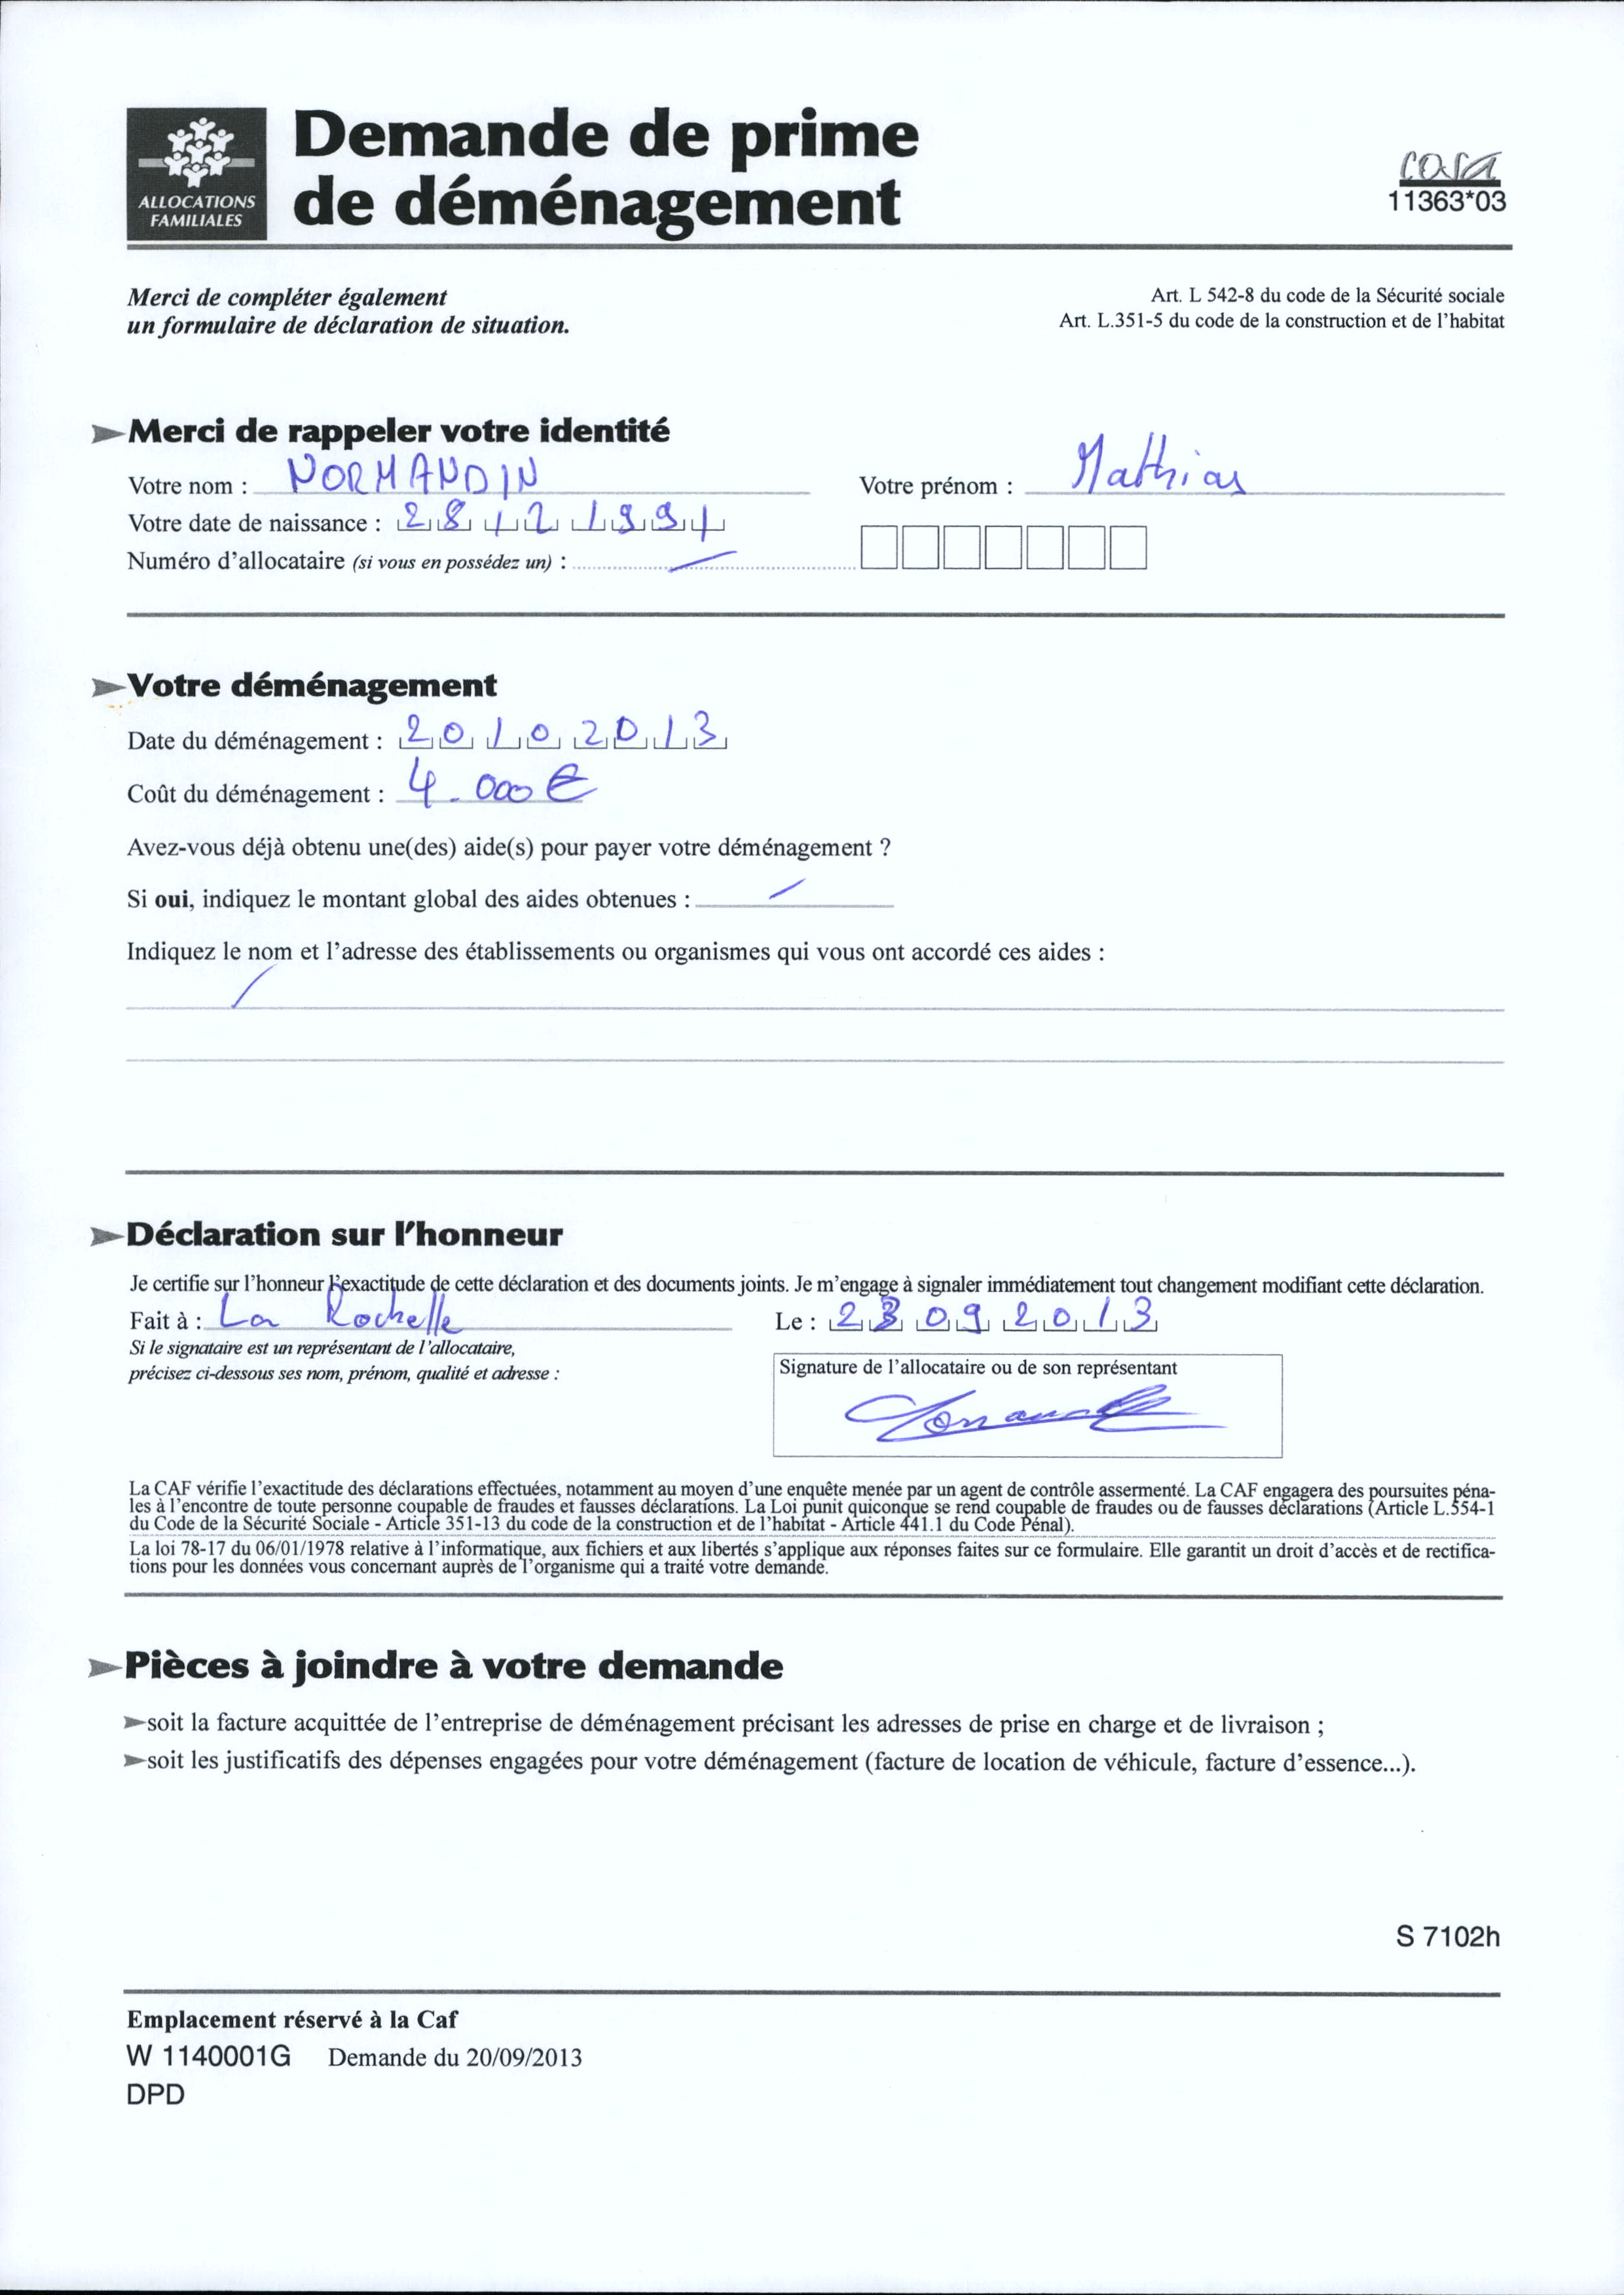 ALLOCATIONS
FAMILIALES
Demande de prime
de déménagement
cerfa
11363*03
Merci de compléter également
un formulaire de déclaration de situation.
Art. L 542-8 du code de la Sécurité sociale
Art. L.351-5 du code de la construction et de l'habitat
Merci de rappeler votre identité
Votre nom : NORMANDIN Votre prénom : Mathias
Votre date de naissance : 28 12 1991
Numéro d'allocataire (si vous en possédez un) : /
Votre déménagement
Date du déménagement : 20 10 2013
Coût du déménagement : 4.000 €
Avez-vous déjà obtenu une(des) aide(s) pour payer votre déménagement ?
Si oui, indiquez le montant global des aides obtenues : /
Indiquez le nom et l'adresse des établissements ou organismes qui vous ont accordé ces aides :
/
Déclaration sur l'honneur
Je certifie sur l'honneur l'exactitude de cette déclaration et des documents joints. Je m'engage à signaler immédiatement tout changement modifiant cette déclaration.
Fait à : La Rochelle Le : 23 09 2013
Si le signataire est un représentant de l'allocataire,
précisez ci-dessous ses nom, prénom, qualité et adresse :
Signature de l'allocataire ou de son représentant
La CAF vérifie l'exactitude des déclarations effectuées, notamment au moyen d'une enquête menée par un agent de contrôle assermenté. La CAF engagera des poursuites péna-
les à l'encontre de toute personne coupable de fraudes et fausses déclarations. La Loi punit quiconque se rend coupable de fraudes ou de fausses déclarations (Article L.554-1
du Code de la Sécurité Sociale - Article 351-13 du code de la construction et de l'habitat - Article 441.1 du Code Pénal).
La loi 78-17 du 06/01/1978 relative à l'informatique, aux fichiers et aux libertés s'applique aux réponses faites sur ce formulaire. Elle garantit un droit d'accès et de rectifica-
tions pour les données vous concernant auprès de l'organisme qui a traité votre demande.
Pièces à joindre à votre demande
soit la facture acquittée de l'entreprise de déménagement précisant les adresses de prise en charge et de livraison ;
soit les justificatifs des dépenses engagées pour votre déménagement (facture de location de véhicule, facture d'essence...).
S 7102h
Emplacement réservé à la Caf
W 1140001G Demande du 20/09/2013
DPD